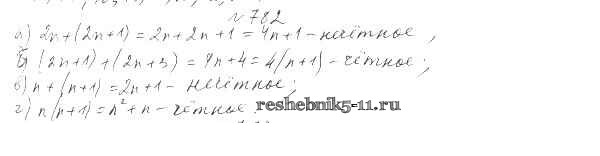 №782
а) 2n+(2n+1)=2n+2n+1=4n+1-нечётное,
б) (2n+1)+(2n+3)=4n+4=4(n+1)-чётное;
в) n+(n+1)=2n+1-нечётное;
г) n(n+1)=n²+n-чётное.
reshebnik5-11.ru